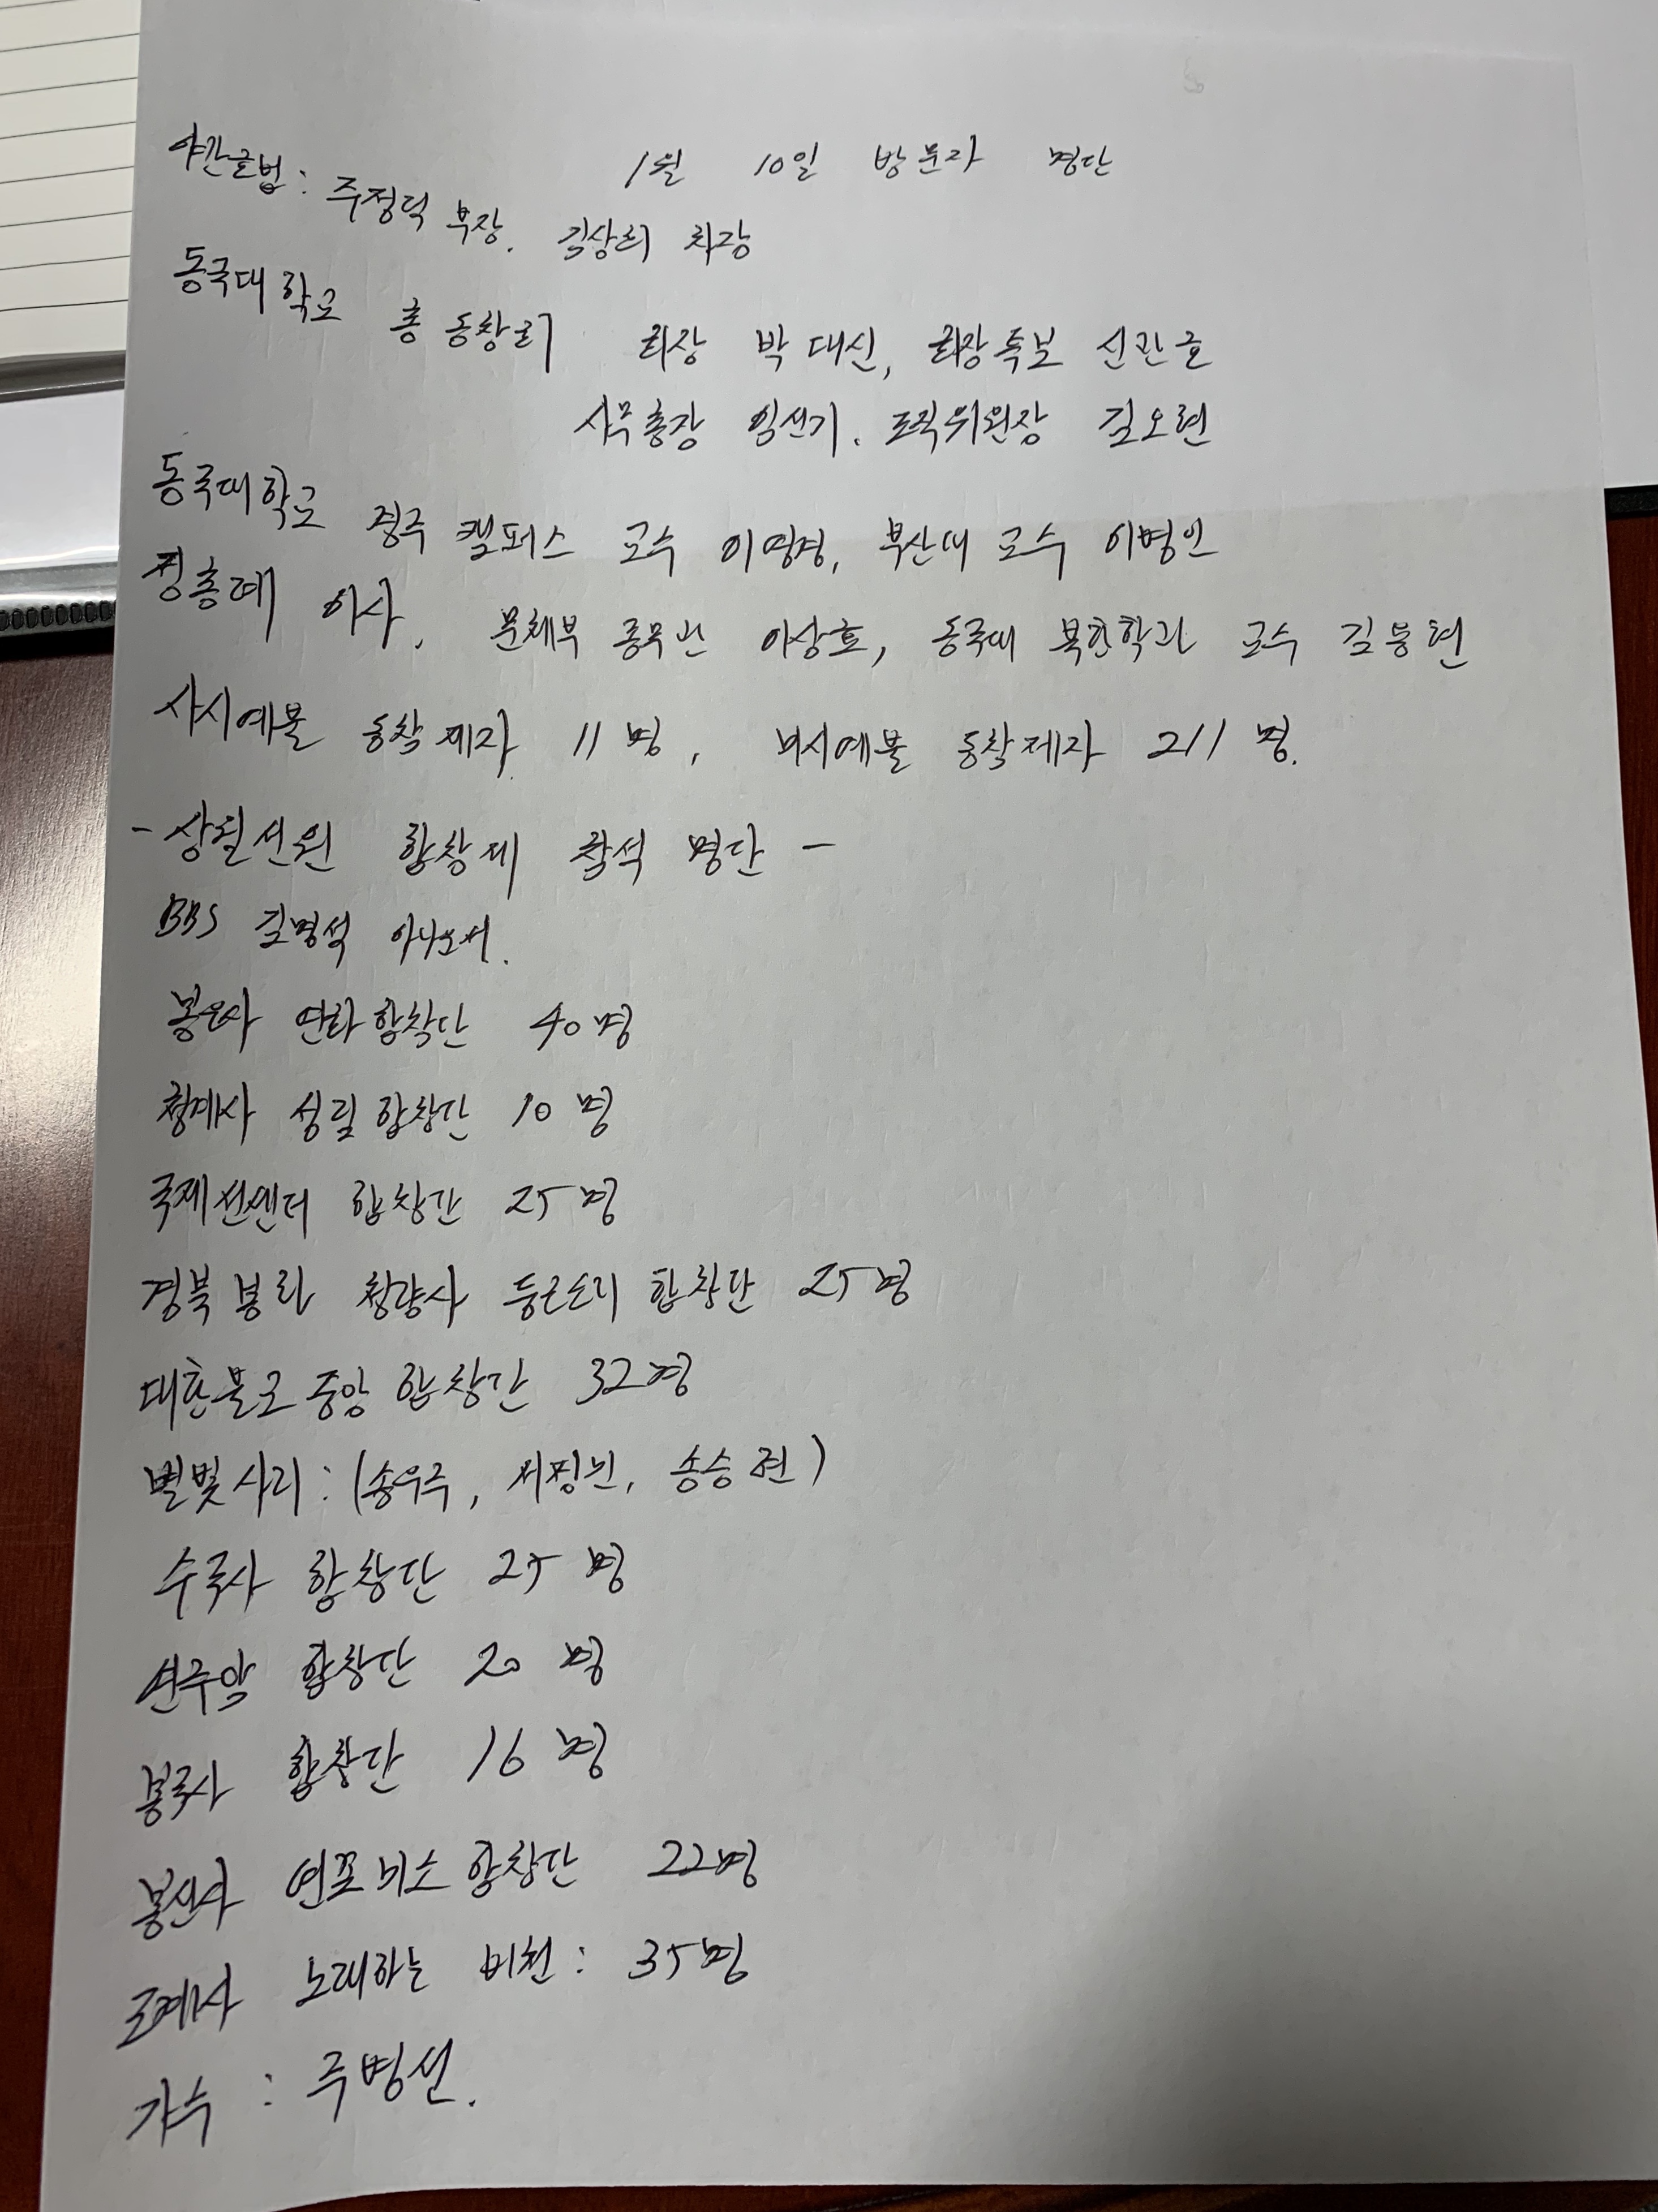 1월 10일 방문자 명단
야간불법: 주정덕 부장. 김상희 차장
동국대학교 총동창회 회장 박대신, 회장특보 신관호
사무총장 임선기. 조직위원장 김오현
동국대학교 경주 캠퍼스 교수 이영경, 부산대 교수 이병인
정충래 이사, 문체부 종무관 이상효, 동국대 북한학과 교수 김용현
사시예불 동참제자 11명, 저녁예불 동참제자 211명.
- 상월선원 합창제 참석 명단 -
BBS 김명석 아나운서.
봉은사 연화합창단 40명
청계사 성림합창단 10명
국제선센터 합창단 25명
경북 봉화 청량사 둥근소리 합창단 25명
대한불교 중앙 합창단 32명
별빛사리 : (송우주, 서정은, 송승현)
수국사 합창단 25명
연주암 합창단 20명
봉국사 합창단 16명
봉선사 연꽃미소 합창단 22명
조계사 노래하는 비천 : 35명
가수 : 주병선.